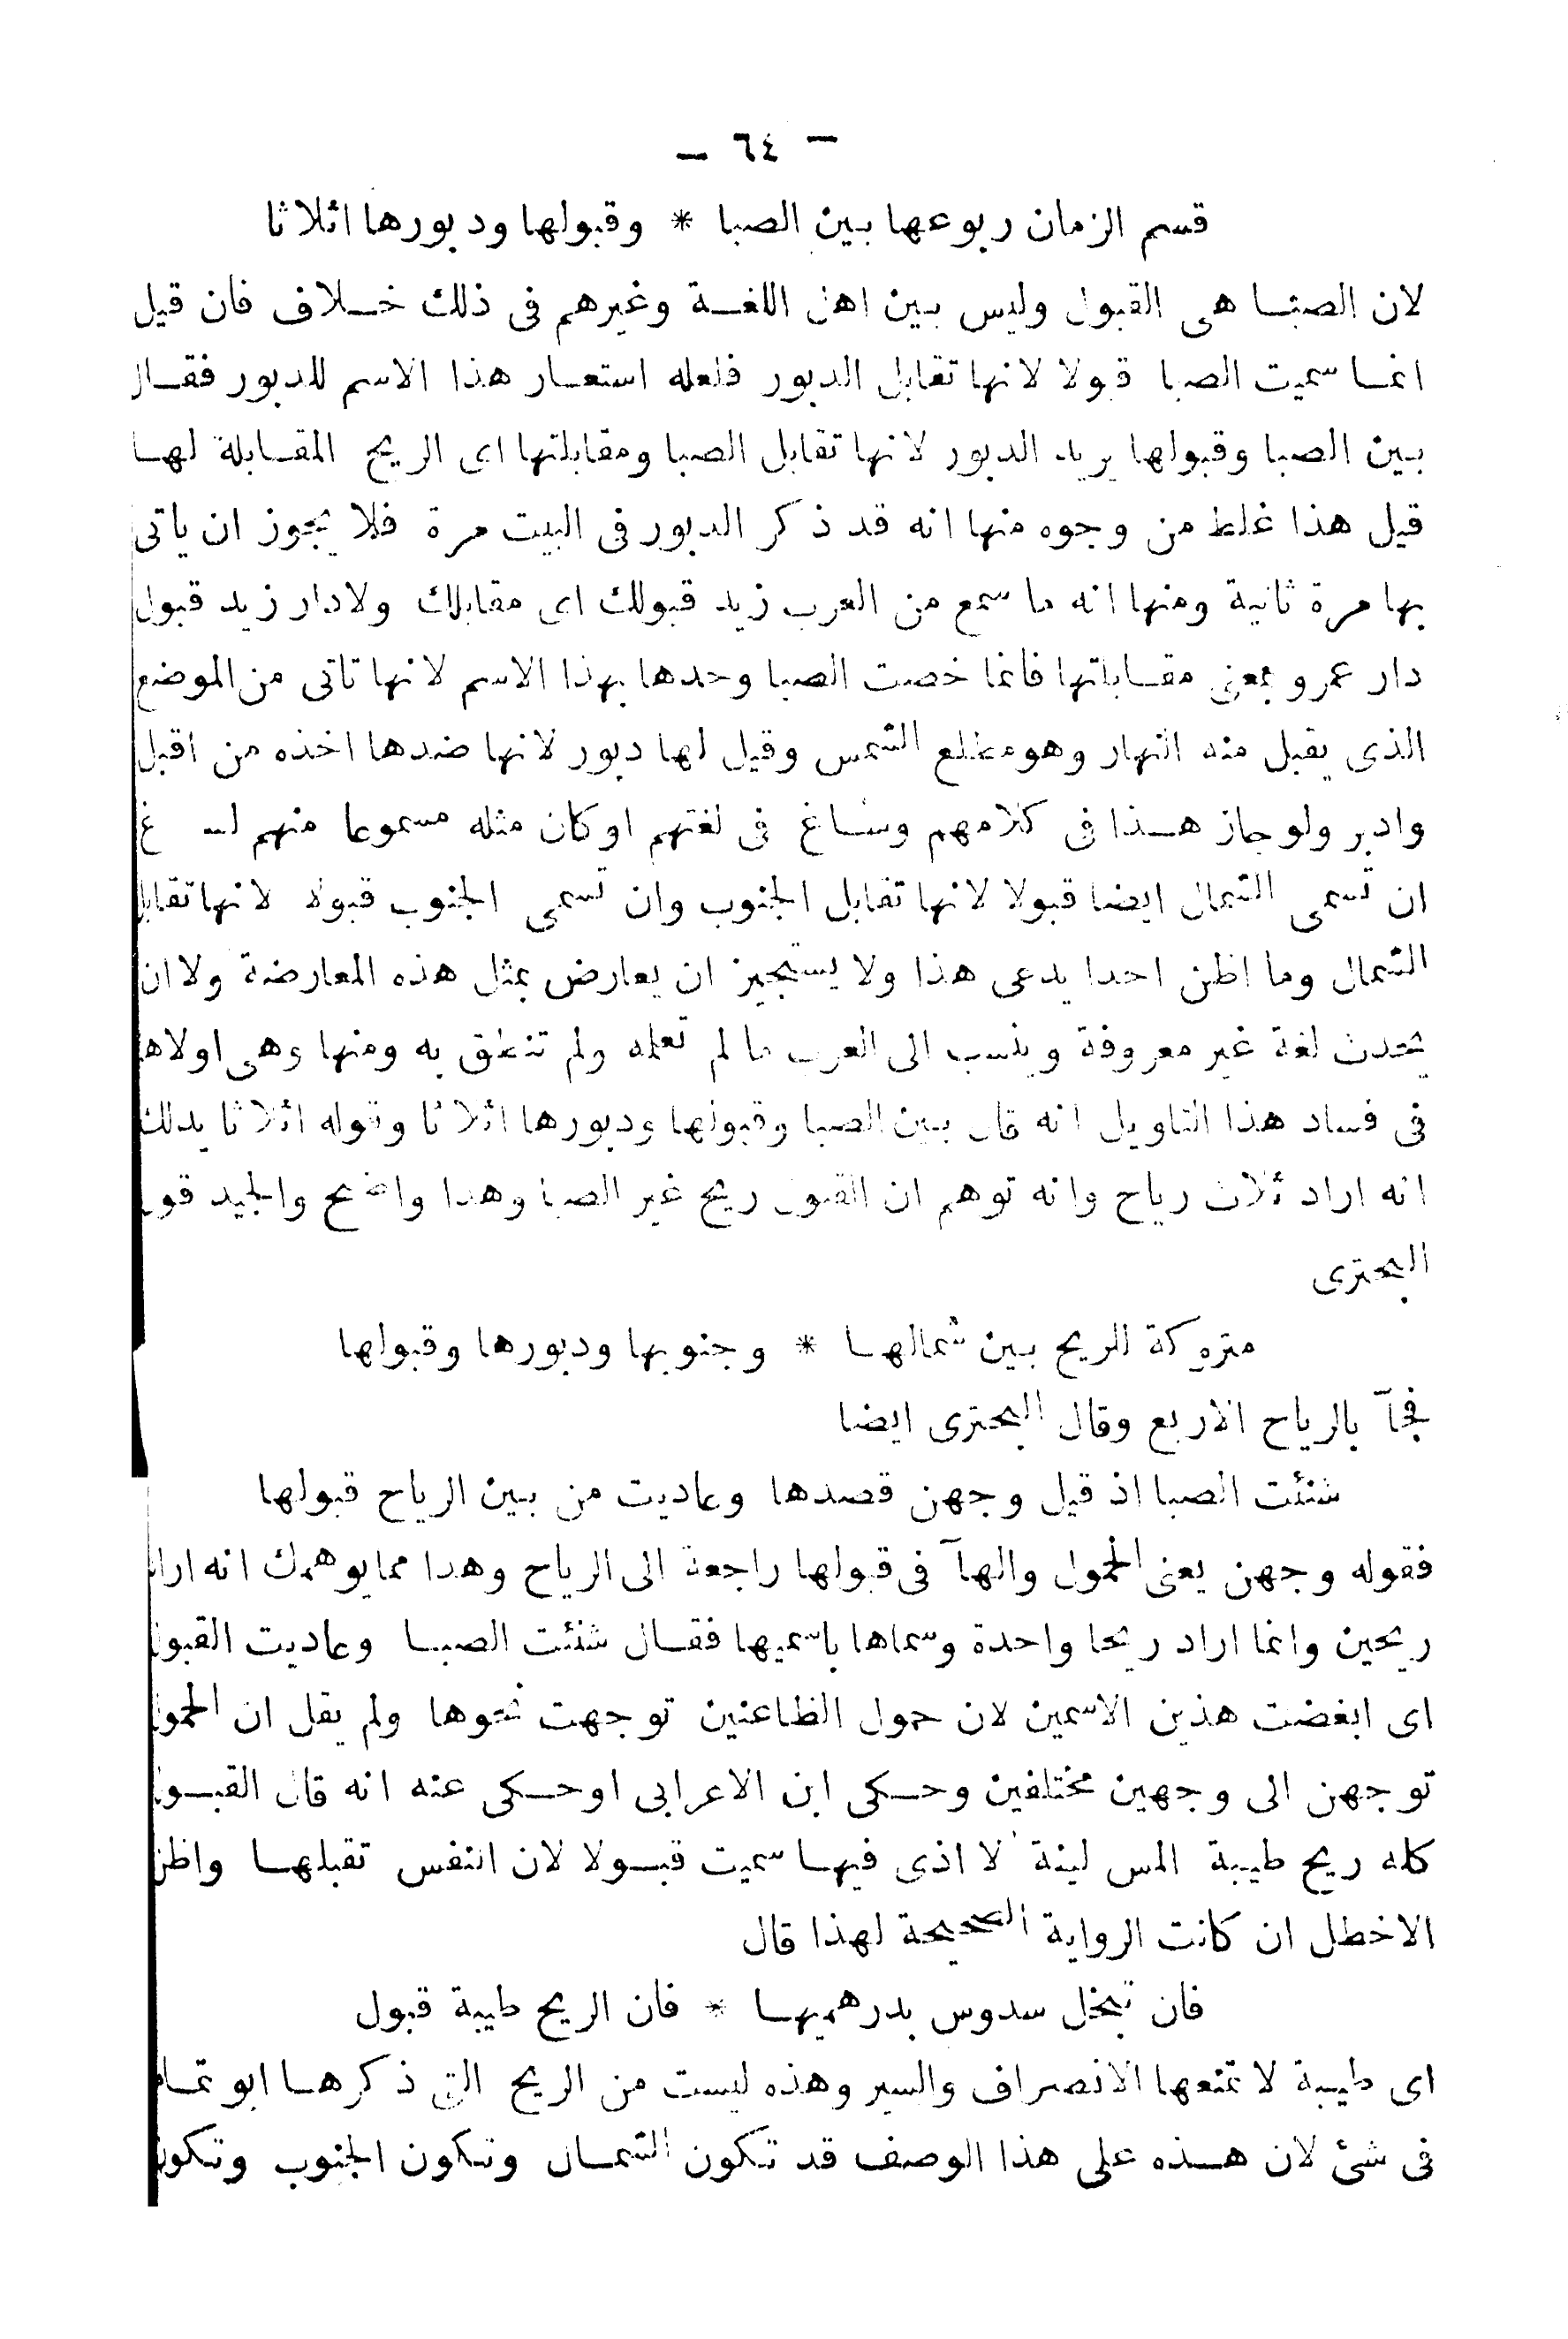 — ٦٤ —
قسم الزمان ربوعها بين الصبا * وقبولها ودبورها اثلاثا
لان الصبا هى القبول وليس بين اهل اللغة وغيرهم فى ذلك خلاف فان قيل
انما سميت الصبا قبولا لانها تقابل الدبور فلعله استعار هذا الاسم للدبور فقال
بين الصبا وقبولها يريد الدبور لانها تقابل الصبا ومقابلتها اى الريح المقابلة لها
قيل هذا غلط من وجوه منها انه قد ذكر الدبور فى البيت مرة فلا يجوز ان ياتى
بها مرة ثانية ومنها انه ما سمع من العرب زيد قبولك اى مقابلك ولادار زيد قبول
دار عمرو بمعنى مقابلتها فانما خصت الصبا وحدها بهذا الاسم لانها تاتى من الموضع
الذى يقبل منه النهار وهو مطلع الشمس وقيل لها دبور لانها ضدها اخذه من اقبل
وادبر ولو جاز هذا فى كلامهم وساغ فى لغتهم او كان مثله مسموعا منهم لساغ
ان تسمى الشمال ايضا قبولا لانها تقابل الجنوب وان تسمى الجنوب قبولا لانها تقابل
الشمال وما اظن احدا يدعى هذا ولا يستجيز ان يعارض بمثل هذه المعارضة ولا ان
يحدث لغة غير معروفة وينسب الى العرب ما لم تعلمه ولم تنطق به ومنها وهى اولاها
فى فساد هذا التاويل انه قال بين الصبا وقبولها ودبورها اثلاثا وقوله اثلاثا يدلك
انه اراد ثلاث رياح وانه توهم ان القبول ريح غير الصبا وهذا واضح والجيد قول
البحترى
متروكة للريح بين شمالها * وجنوبها ودبورها وقبولها
فجآ بالرياح الاربع وقال البحترى ايضا
شنئت الصبا اذ قيل وجهن قصدها وعاديت من بين الرياح قبولها
فقوله وجهن يعنى الحمول والهآ فى قبولها راجعة الى الرياح وهذا مما يوهمك انه اراد
ريحين وانما اراد ريحا واحدة وسماها باسميها فقال شنئت الصبا وعاديت القبول
اى ابغضت هذين الاسمين لان حمول الظاعنين توجهت نحوها ولم يقل ان الحمول
توجهن الى وجهين مختلفين وحكى ابن الاعرابى او حكى عنه انه قال القبول
كله ريح طيبة المس لينة لا اذى فيها سميت قبولا لان النفس تقبلها واظن
الاخطل ان كانت الرواية الصحيحة لهذا قال
فان تبخل سدوس بدرهميها * فان الريح طيبة قبول
اى طيبة لا تمنعها الانصراف والسير وهذه ليست من الريح التى ذكرها ابو تمام
فى شئ لان هذه على هذا الوصف قد تكون الشمال وتكون الجنوب وتكون